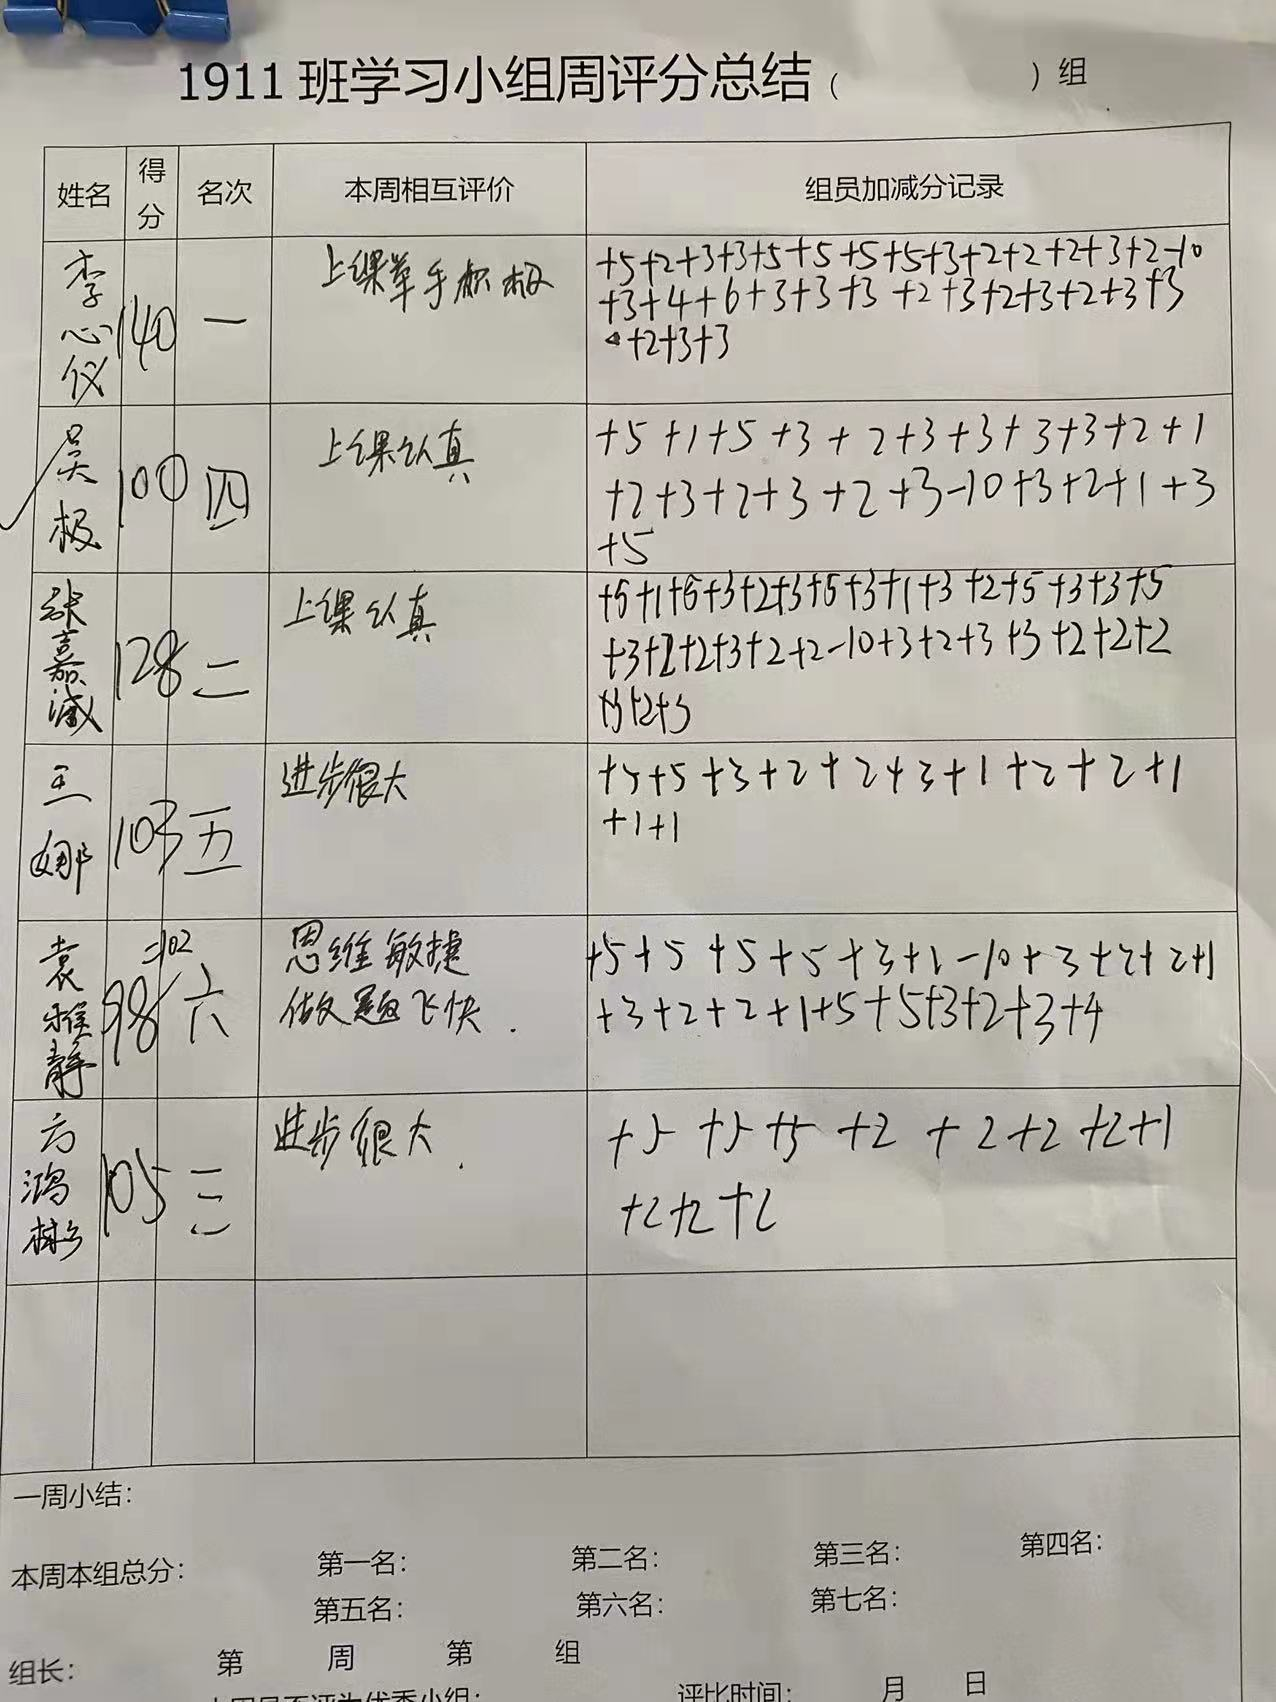 1911 班学习小组周评分总结（ ）组
姓名 得分 名次 本周相互评价 组员加减分记录
李心仪 140 一 上课举手积极
+5+2+3+3+5+5+5+5+3+2+2+2+3+2-10
+3+4+6+3+3+3+2+3+2+3+2+3+3
+2+3+3
吴极 100 四 上课认真
+5+1+5+3+2+3+3+3+3+2+1
+2+3+2+3+2+3-10+3+2+1+3
+5
张嘉 128 二 上课认真
+5+1+5+3+2+3+5+3+1+3+2+5+3+3+5
+3+2+2+3+2+2-10+3+2+3+3+2+2+2
+3+2+3
王娜 103 五 进步很大
+5+5+3+2+2+3+1+2+2+1
+1+1
袁雅静 98 =102 六 思维敏捷
做题飞快.
+5+5+5+5+3+2-10+3+2+2+1
+3+2+2+1+5+5+3+2+3+4
方鸿彬 105 三 进步很大.
+5+5+5+2+2+2+2+1
+2+2+2
一周小结：
本周本组总分： 第一名： 第二名： 第三名： 第四名：
第五名： 第六名： 第七名：
组长： 第 周 第 组
评比时间： 月 日